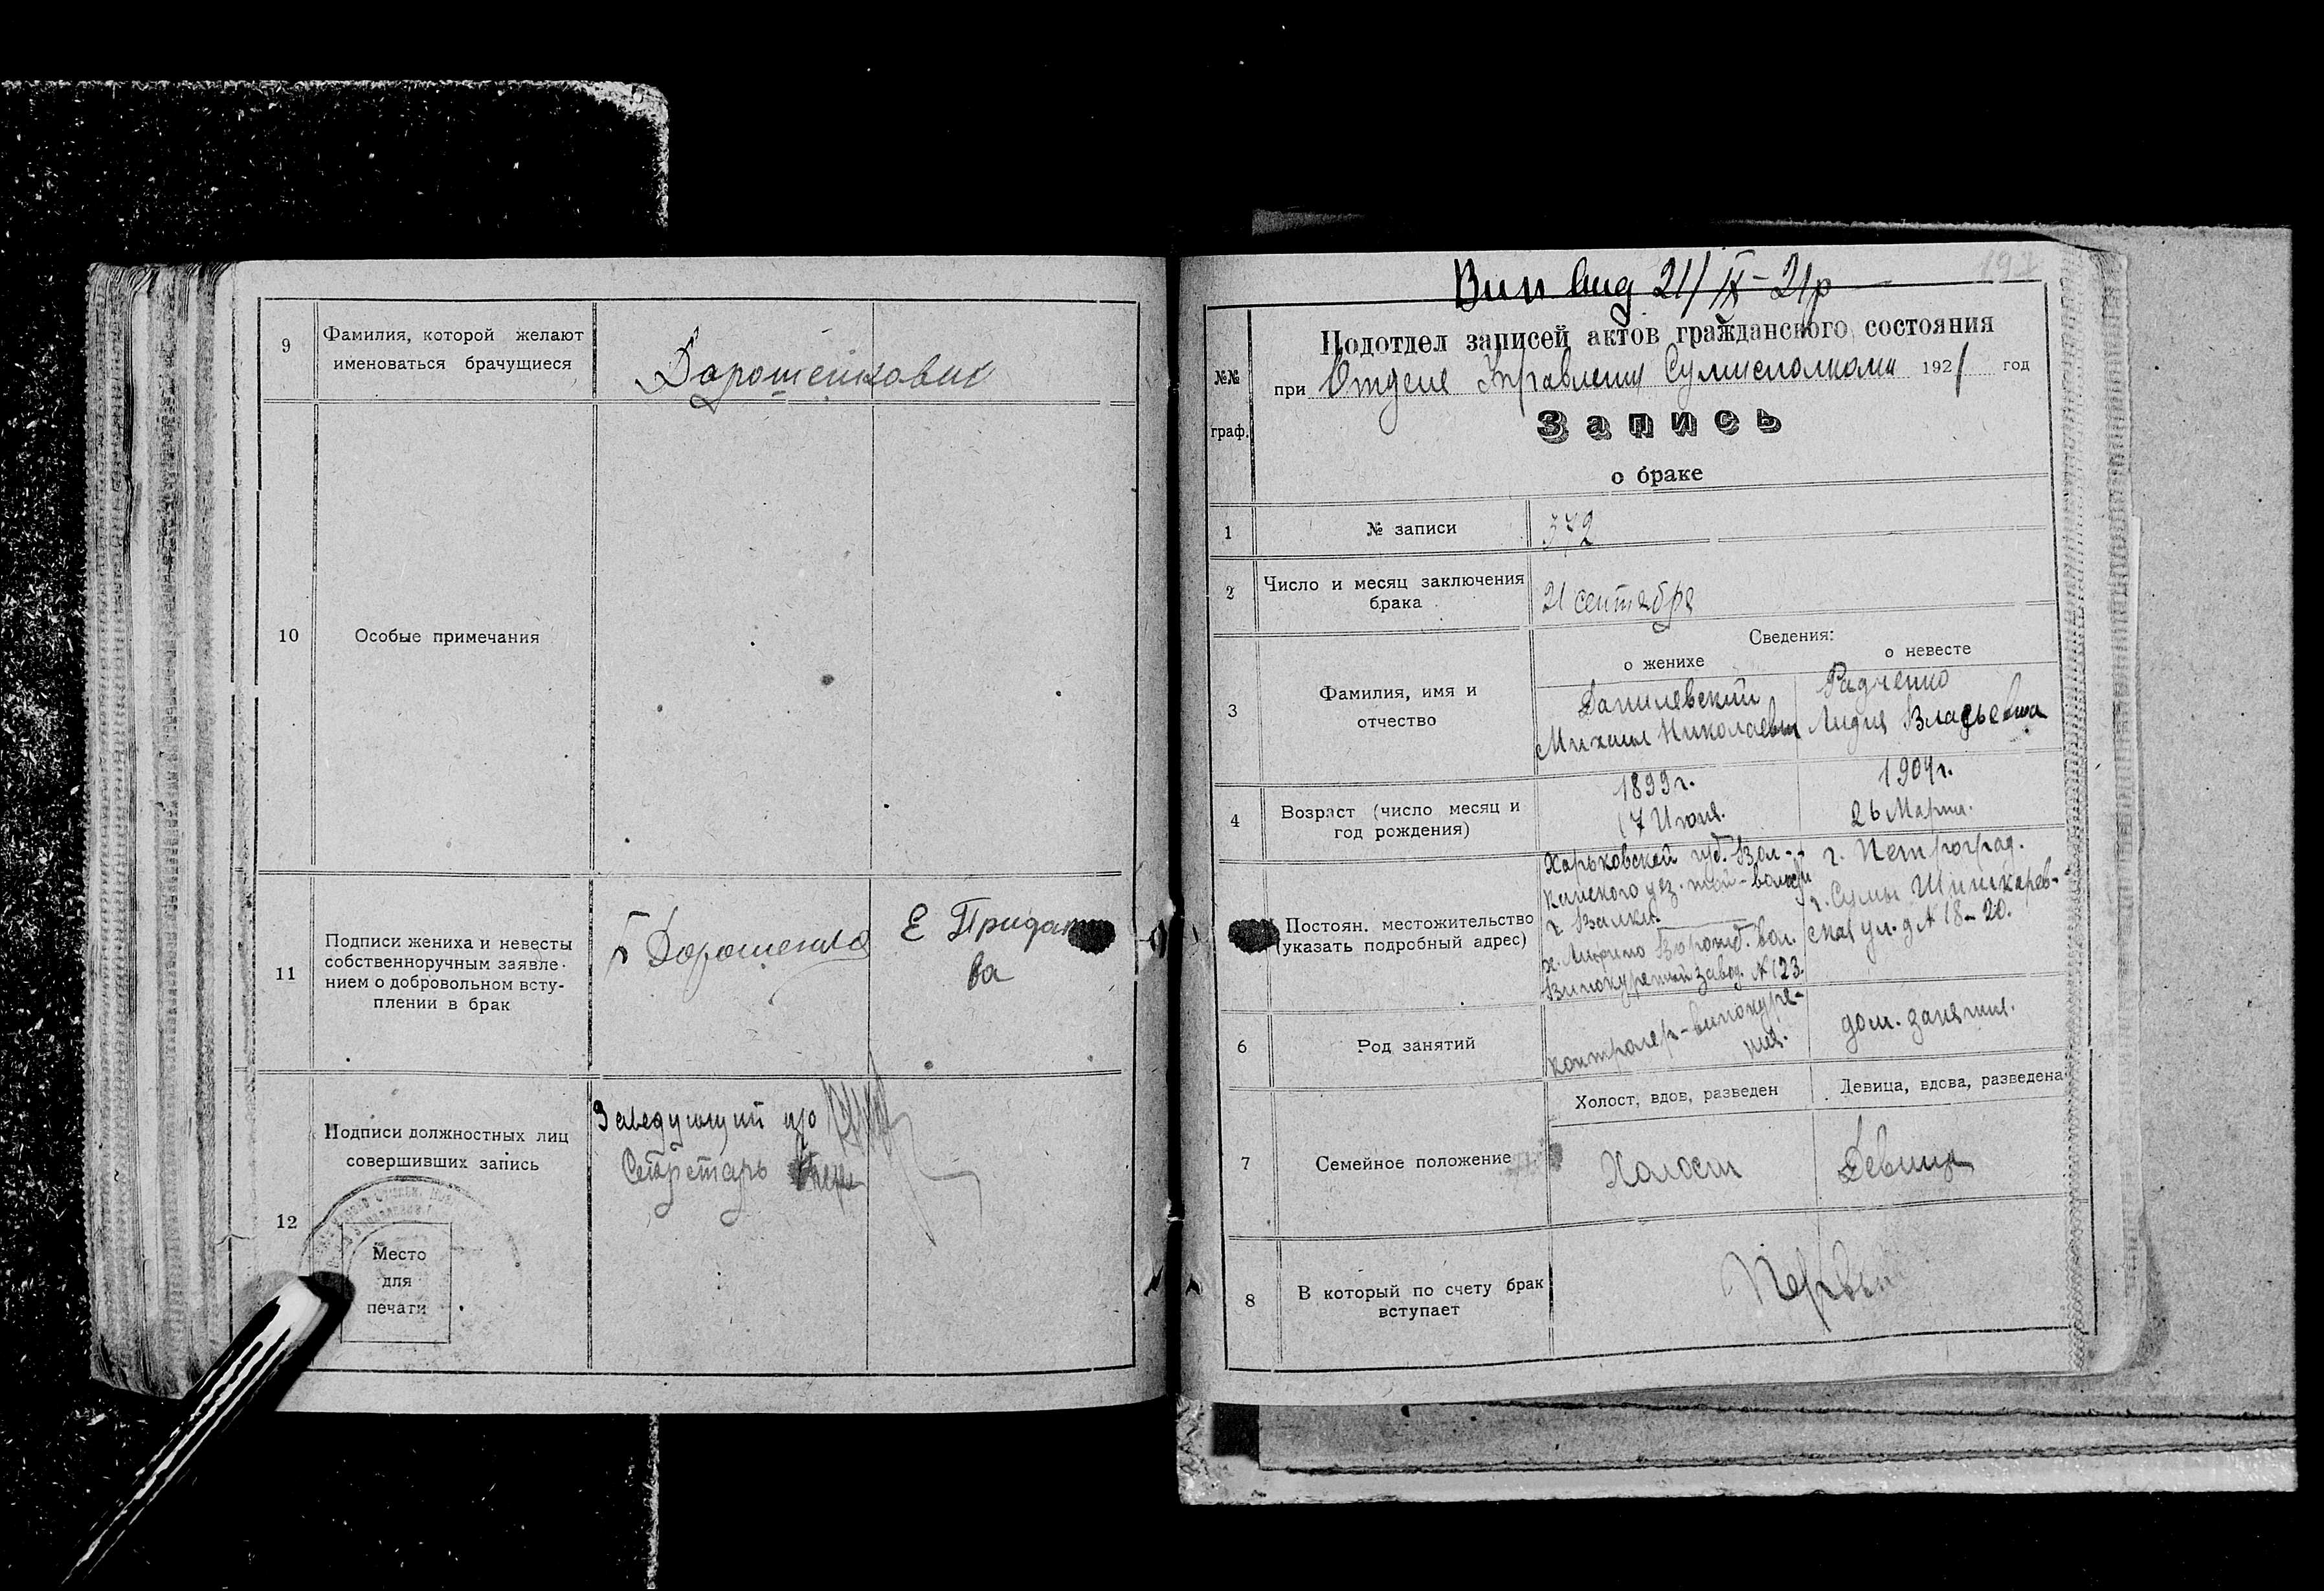 9
Фамилия, которой желают
именоваться брачущиеся
Дорошенкович
10
Особые примечания
11
Подписи жениха и невесты
собственноручным заявле-
нием о добровольном всту-
плении в брак
Дорошенко
Е Придат
ва
Подписи должностных лиц
совершивших запись
Заведующий п/о
Секретарь
12
Место
для
печати
Вип вид 21/IX-21р
197
Подотдел записей актов гражданского состояния
при Отделе Управления Сумисполкома 1921 год
№№
граф.
Запись
о браке
1
№ записи
372
2
Число и месяц заключения
брака
21 сентября
Сведения:
о женихе
о невесте
3
Фамилия, имя и
отчество
Данилевский
Михаил Николаевич
Радченко
Лидия Владьевна
4
Возраст (число месяц и
год рождения)
1899г.
17 Июня.
1904г.
26 Марта.
Постоян. местожительство
(указать подробный адрес)
Харьковской губ. Вал-
г. Валки.
Ворожб. вол.
Винокуренный завод. № 123.
г. Петроград.
г. Сумы Шишкарев-
ская ул. д № 18-20.
6
Род занятий
контролер-винокуре-
ния.
дом. занятия.
7
Семейное положение
Холост, вдов, разведен
Девица, вдова, разведена
Холост
Девица
8
В который по счету брак
вступает
Первый